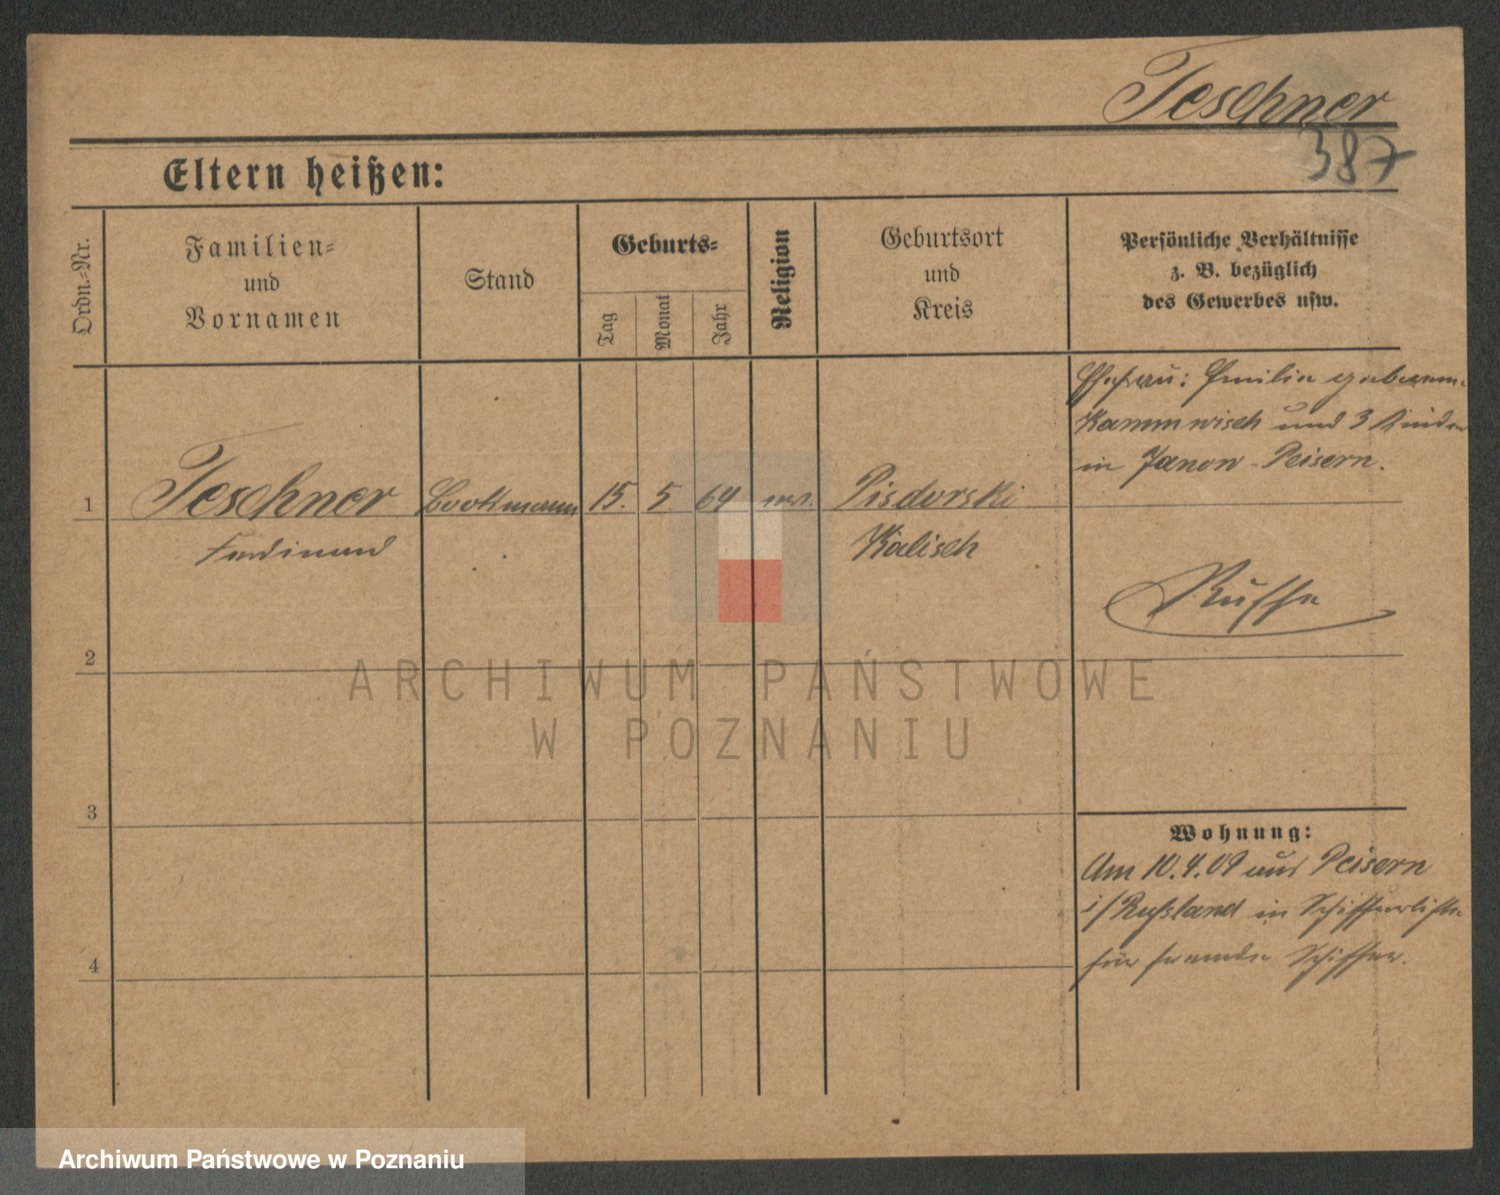 Teschner
387
Eltern heißen:
Ordn.-Nr.
Familien-
und
Vornamen
Stand
Geburts-
Tag
Monat
Jahr
Religion
Geburtsort
und
Kreis
Persönliche Verhältnisse
z. B. bezüglich
des Gewerbes usw.
Ehefrau: Emilie geborene
Kammwisch und 3 Kinder
in Janow-Peisern.
1 Teschner Bootsmann 15. 5 64 Pisdorski
Ferdinand Kalisch
Russe
2
3
4
Wohnung:
Am 10.4.09 aus Peisern
i/Rußland in Schifferliste
für fremde Schiffer.
ARCHIWUM PAŃSTWOWE
W POZNANIU
Archiwum Państwowe w Poznaniu